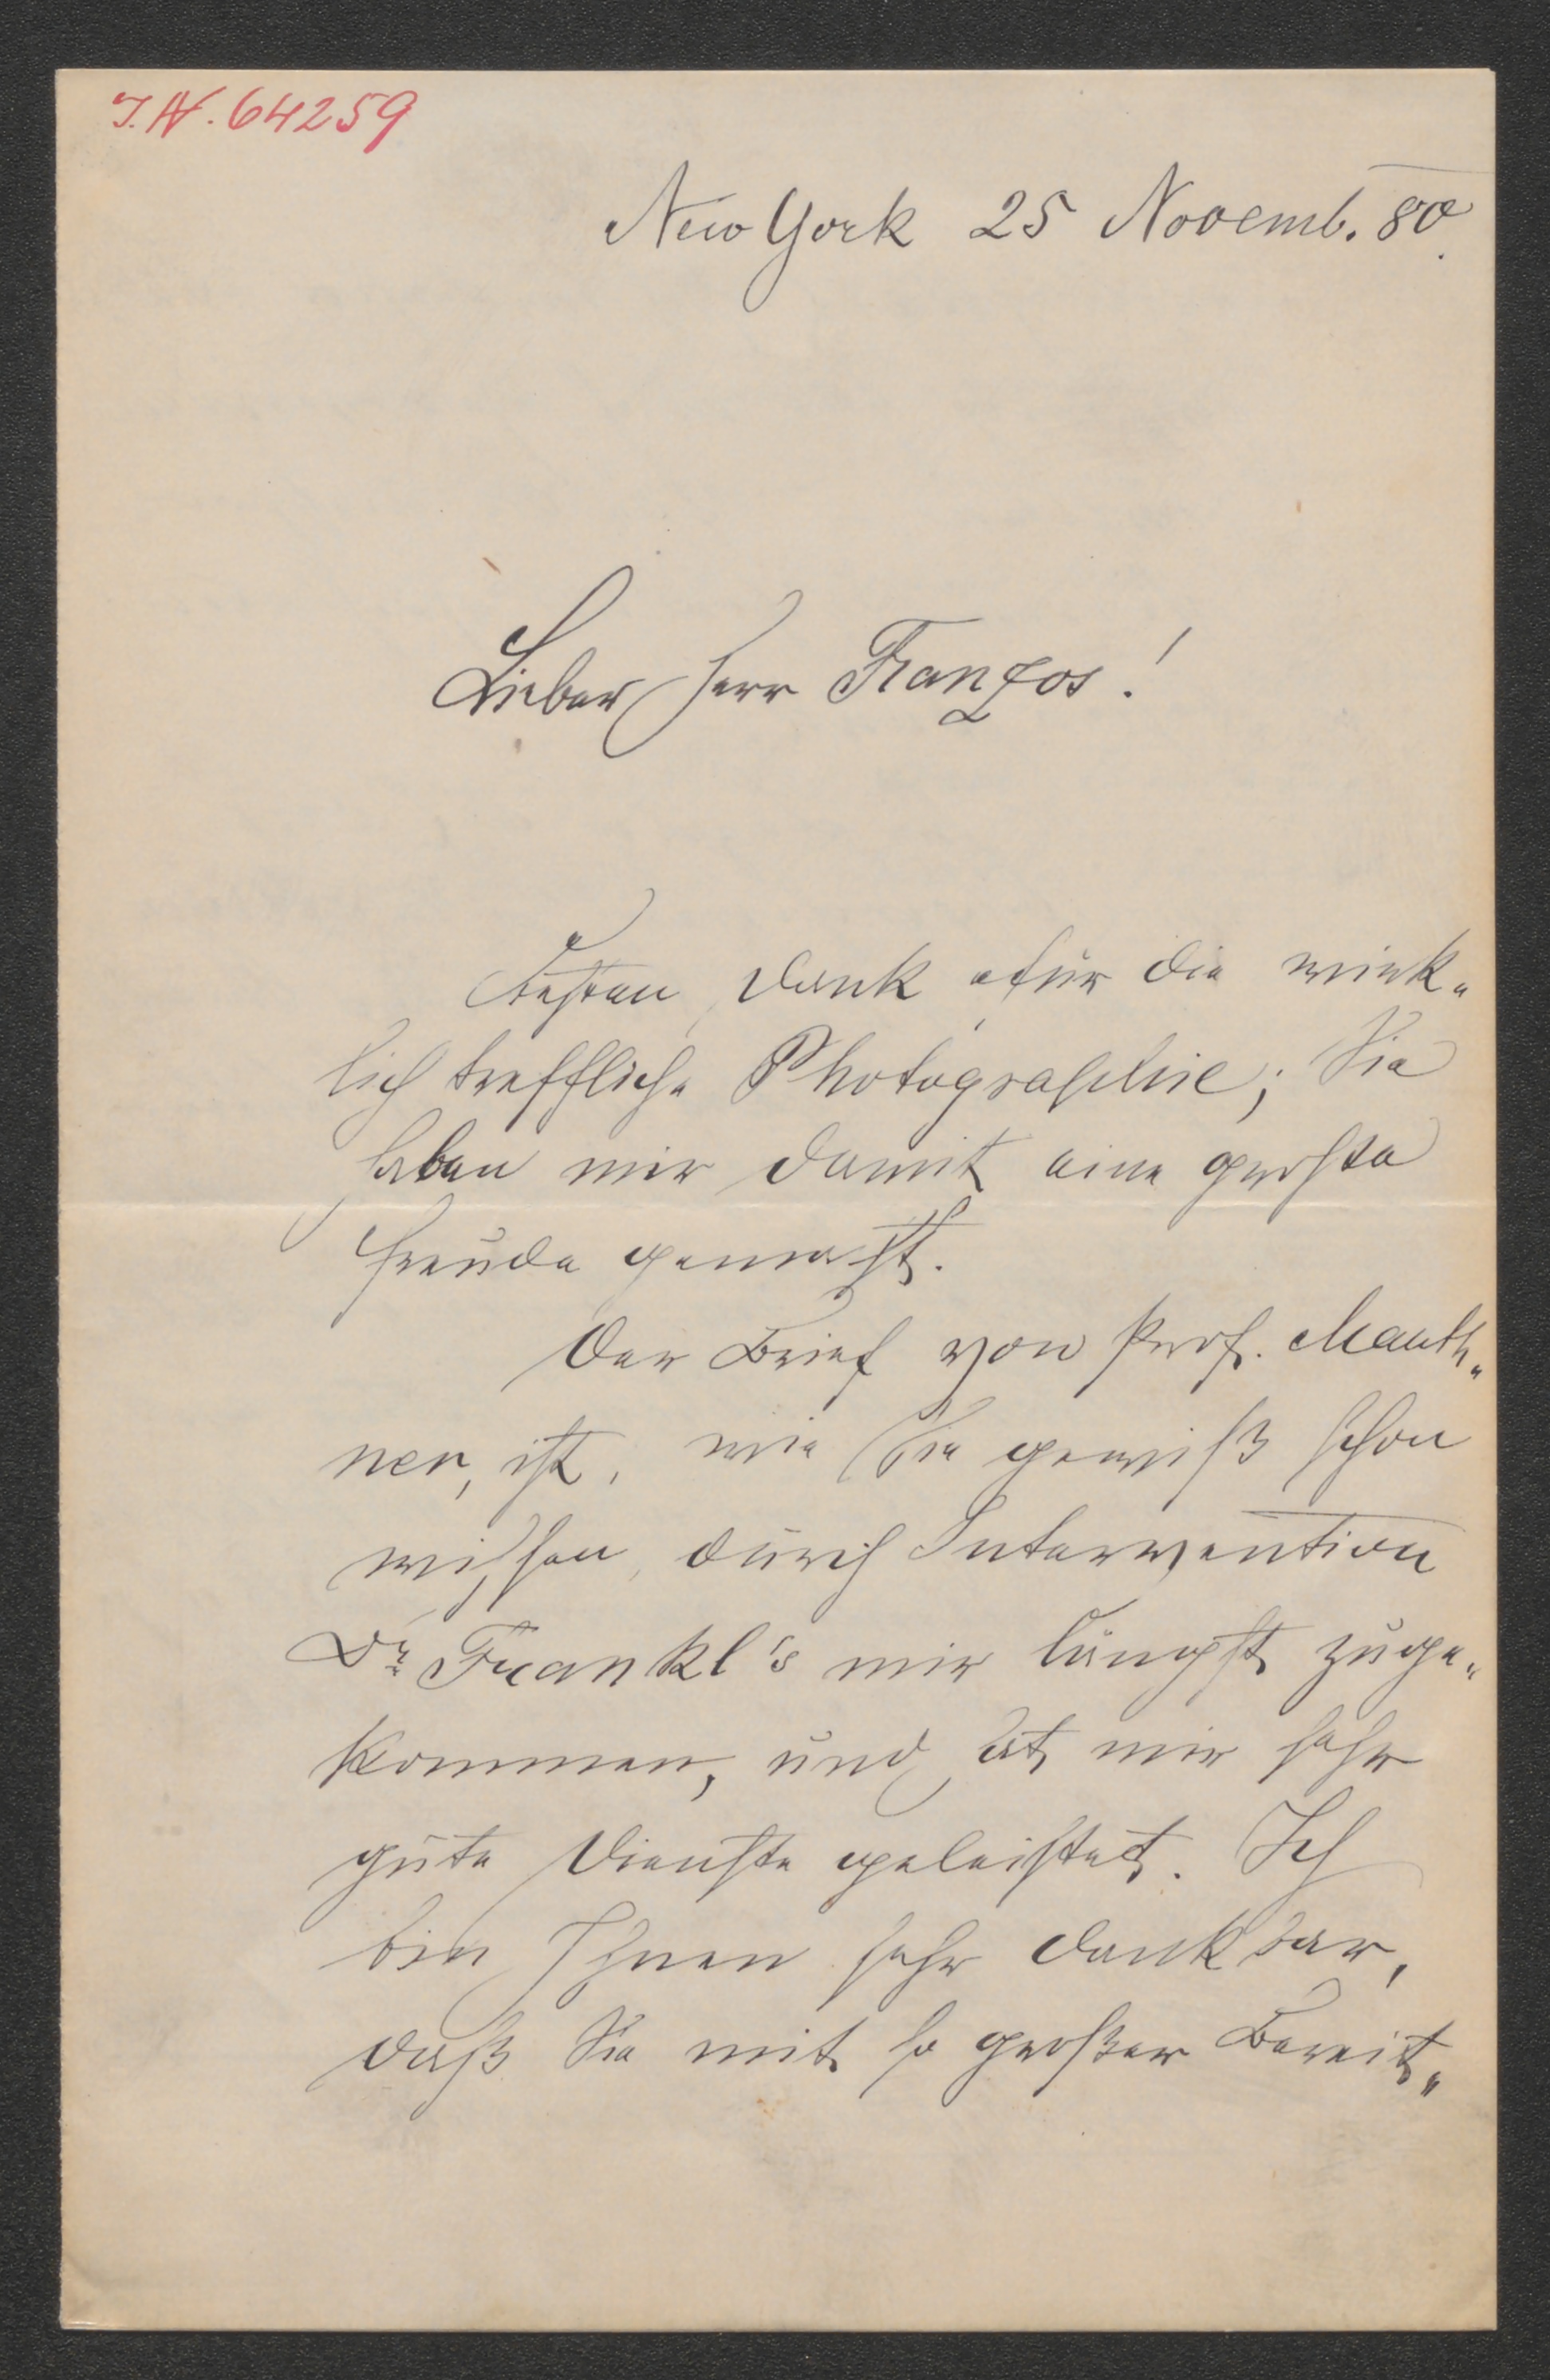 I.N. 64259
New York 25 Novemb. 80.
Lieber Herr Franzos!
Besten Dank für die wirk„
lich treffliche Photographie; Sie
haben mir damit eine große
Freude gemacht.
Der Brief von Prof. Mauth„
ner, ist, wie Sie gewiß schon
wissen, durch Intervention
Dr Frankl's mir längst zuge„
kommen, und hat mir sehr
gute Dienste geleistet. Ich
bin Ihnen sehr dankbar,
daß Sie mit so großer Bereit„